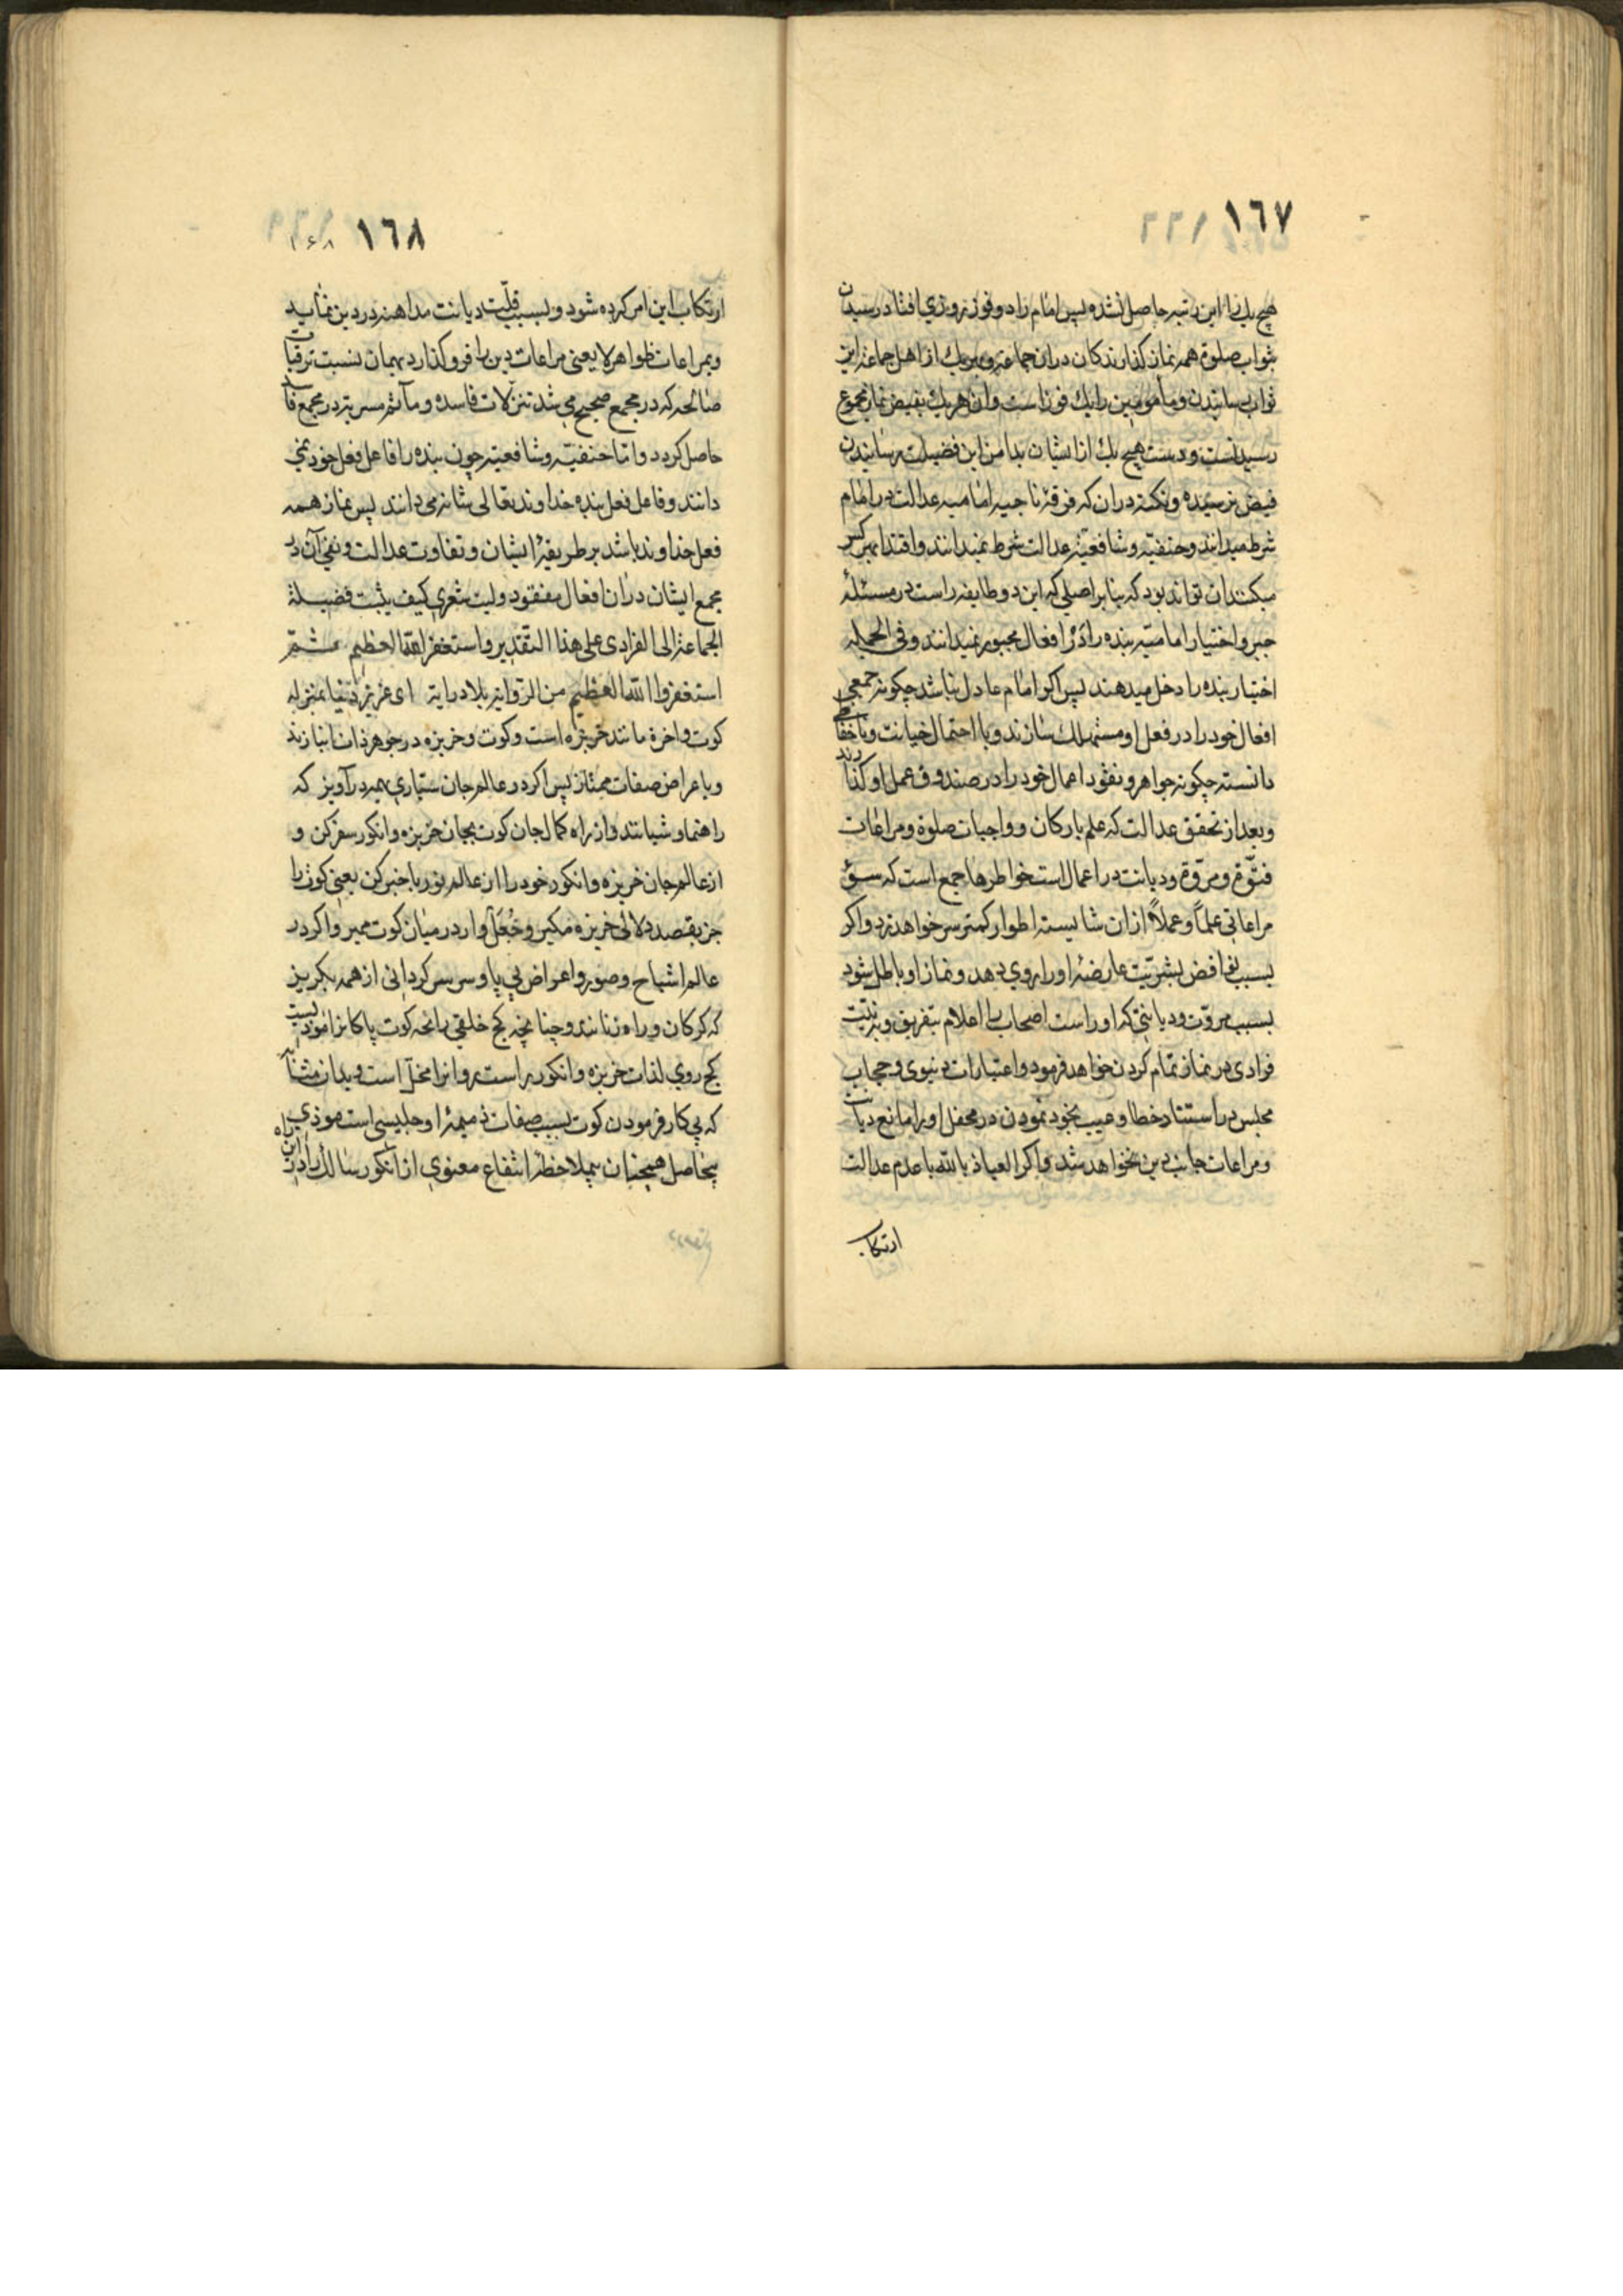 ١٦٧
هیچ یك را این رتبه حاصل نشده پس امام را دو فوز روزی افتاد رسیدن
بثواب صلوة همه نماز کذارندکان دران جماعة و بهر یك از اهل جماعة این
ثواب رسانیدن و مأمومین را یك فوز است و ان هر یك بفیض نماز مجموع
رسیدنست و دست هیچ یك از ایشان بدامن این فضیلت رسانیدن
فیض نرسیده و نکته دران که فرقۀ ناجیه امامیه عدالت در امام
شرط میدانند و حنفیّه و شافعیّه عدالت شرط نمیدانند و اقتدا بهر کس
میکنند ان تواند بود که بنا بر اصلی که این دو طایفه راست در مسئلۀ
جبر و اختیار امامیّه بنده را در افعال مجبور نمیدانند و فی الجمله
اختیار بنده را دخل میدهند پس اکر امام عادل نباشد چکونه جمعی
افعال خود را در فعل او مستهلك سازند و با احتمال خیانت و ناحفاظی
دانسته چکونه جواهر و نقود اعمال خود را در صندوق عمل او کذارند
و بعد از تحقق عدالت که علم بارکان و واجبات صلوة و مراعات
فتوّة و مروّة و دیانت در اعمال است خواطرها جمع است که سوء
مراعاتی علماً و عملاً از ان شایسته اطوار کمتر سر خواهد زد و اکر
بسبب نواقض بشریّت عارضۀ او را روی دهد و نماز او باطل شود
بسبب مروّت و دیانتی که او راست اصحاب را اعلام بتفریق و به نیّت
فرادی در نماز تمام کردن خواهد فرمود و اعتبارات دنیوی و حجاب
مجلس در استناد خطا و عیب بخود نمودن در محفل او را مانع دیانت
و مراعات جانب دین نخواهد شد و اکر العیاذ بالله با عدم عدالت
ارتکاب
١٦٨
۱۶۸
ارتکاب این امر کرده شود و بسبب قلّت دیانت مداهنه در دین نماید
و بمراعات ظواهر لا یعنی مراعات دین را فرو کذارد بهمان نسبت ترقیات
صالحه که در مجمع صحیح می شد تنزّلات فاسده و مآثم سریه در مجمع فاسد
حاصل کردد و امّا حنفیّه و شافعیّه چون بنده را فاعل فعل خود نمی
دانند و فاعل فعل بنده خداوند تعالی شانه می دانند پس نماز همه
فعل خداوند باشد بر طریقۀ ایشان و تفاوت عدالت و نفی آن در
مجمع ایشان دران افعال مفقود و لیت شعری کیف یثبت فضیلة
الجماعة الی الفرادی علی هذا التقدیر و استغفر الله العظیم ثمّ
استغفروا الله العظیم من الرّوایة بلا درایة ای عزیز دنیا بمنزله
کوت و اخرة مانند خربزه است و کوت و خربزه در جوهر ذات انبازند
و با عراض صفات ممتاز پس اکر در عالم جان ستیاری بهمه درآویز که
راهنما و شیاتند و از راه کمال جان کوت بجان خربزه و انکور سفر کن و
از عالم جان خربزه و انکور خود را از عالم نور با خبر کن یعنی کوت را
جز بقصد دلالی خربزه مکیر و جُعَل وار در میان کوت ممیر و اکر در
عالم اشباح و صور و اعراض بی پا و سر سرکردانی از همه بکریز
که کرکان و راه زنانند و چنانچه کج خلقی رایحه کوت پاکانرا موذیست
کج روی لذات خربزه و انکور راست روانرا مخلّ است و بدان مثابه
که بی کار فرمودن کوت بسبب صفات ذمیمۀ او جلیسی است موذی
بیحاصل همچنان بیملاحظۀ انتفاع معنوی از انکور سالك را در این راه